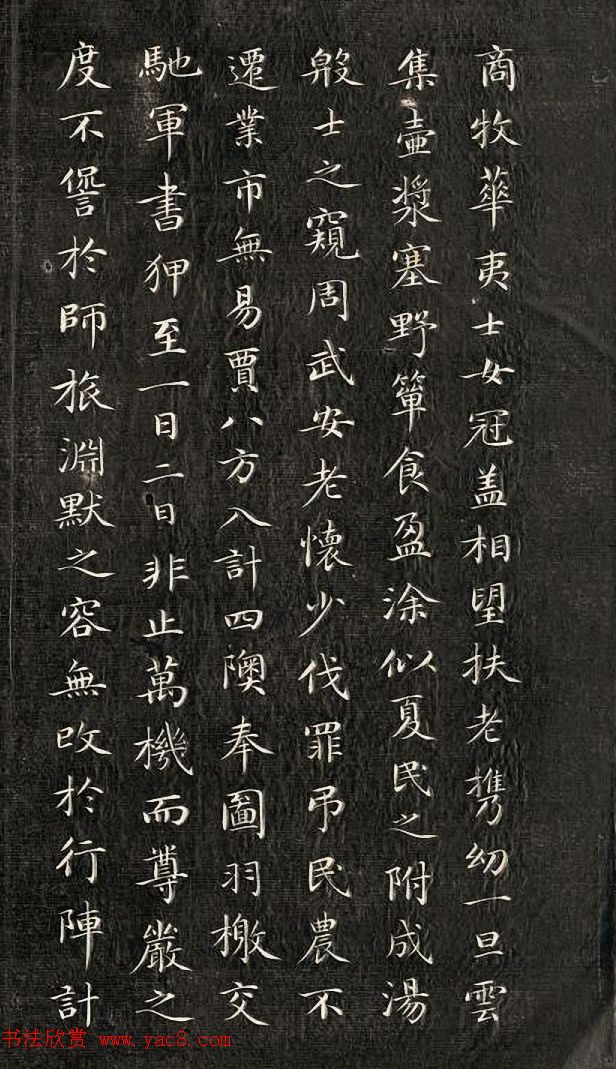 商牧華夷士女冠盖相望扶老攜幼一旦雲
集壷漿塞野簞食盈涂似夏民之附成湯
殷士之窺周武安老懷少伐罪弔民農不
遷業市無易賈八方入計四隩奉圖羽檄交
馳軍書狎至一日二日非止萬機而尊嚴之
度不諐於師旅淵默之容無改於行陣計
书法欣赏 www.yac8.com